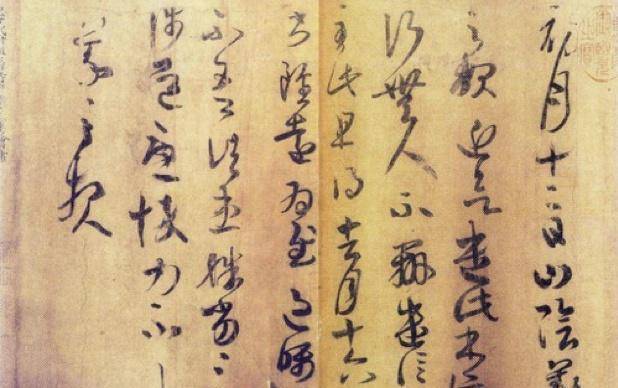 初月十二日山陰羲
之報近欲遣此書停
行無人不辦遣信
至此且得去月十六
書雖遠為慰過囑
不吾諸患殊劣劣
涉道憂悴力不
羲之報